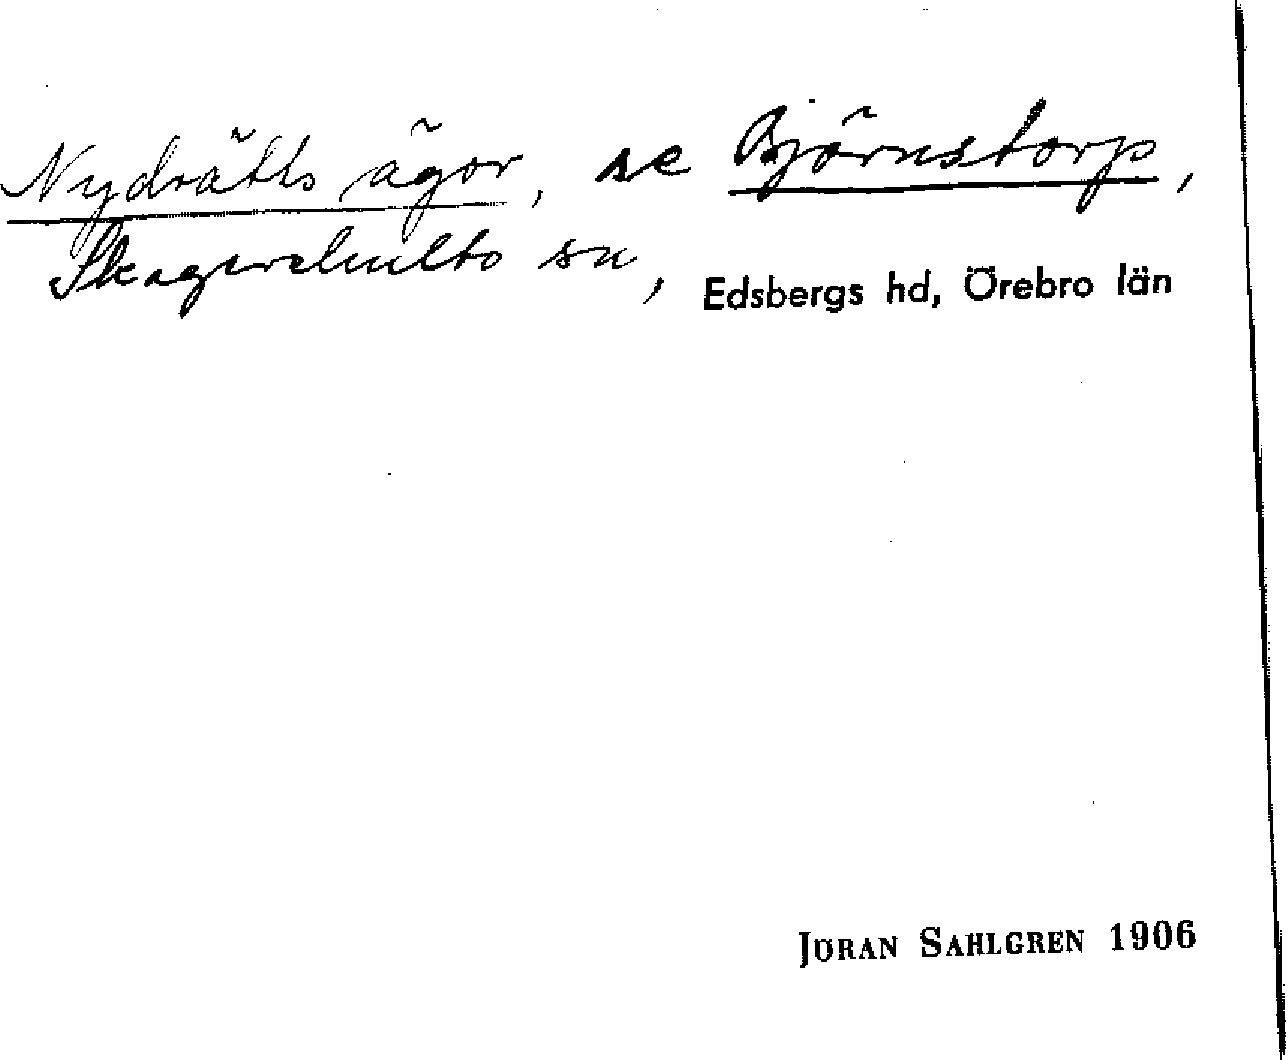 Nydrätts ägor, se Björnstorp,
Skagershults sn, Edsbergs hd, Örebro län
JÖRAN SAHLGREN 1906